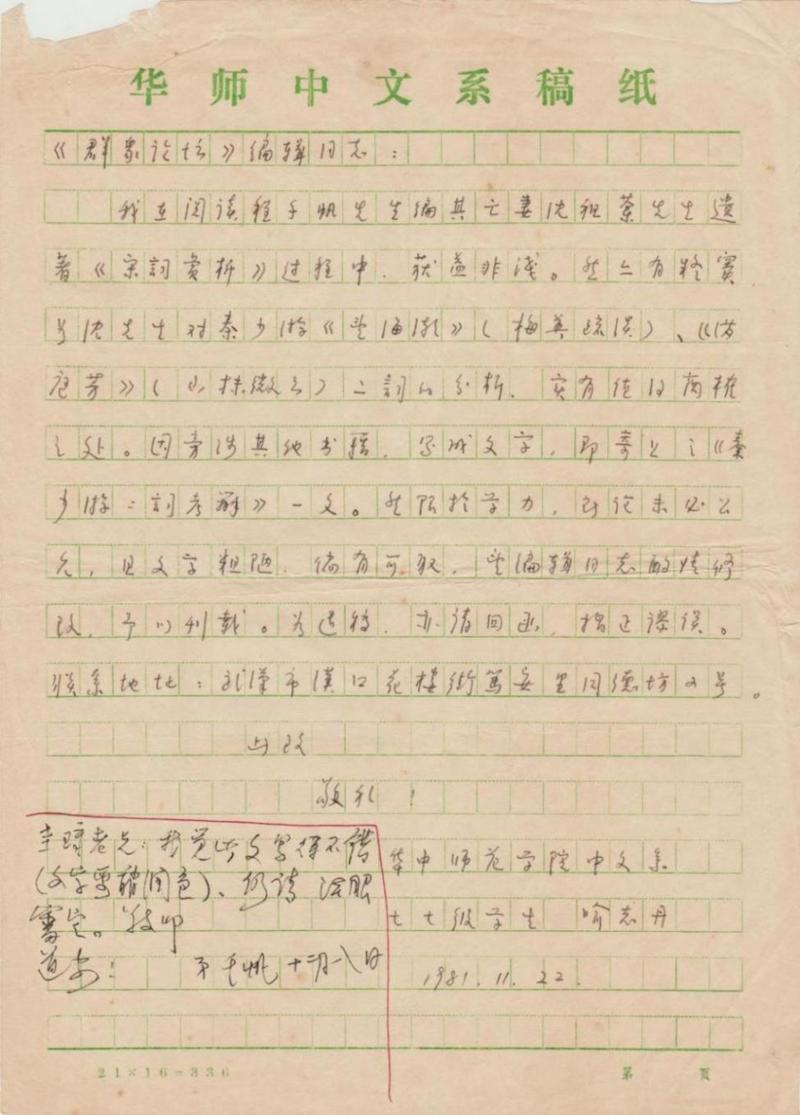 华师中文系稿纸
《群众论坛》编辑同志：
我在阅读程千帆先生编其亡妻沈祖棻先生遗
著《宋词赏析》过程中，获益非浅。然亦有疑窦
，沈先生对秦少游《望海潮》（梅英疏淡）、《满
庭芳》（山抹微云）二词的分析，实有值得商榷
之处。因旁涉其他书籍，写成文字，即寄上之《秦
少游二词考辨》一文。然限于学力，所论未必公
允，且文字粗陋，倘有可取，望编辑同志酌情修
改，予以刊载。若退稿，亦请回函，指正谬误。
联系地址：武漢市漢口花楼街笃安里同德坊2号。
此致
敬礼！
华中师范学院中文系
七七级学生 喻志丹
1981.11.22.
老兄：我觉此文写得不错
（文字要稍润色）、仍请法眼
审定。敬叩
道安！ 弟千帆 十二月八日
21×16=336
第 页